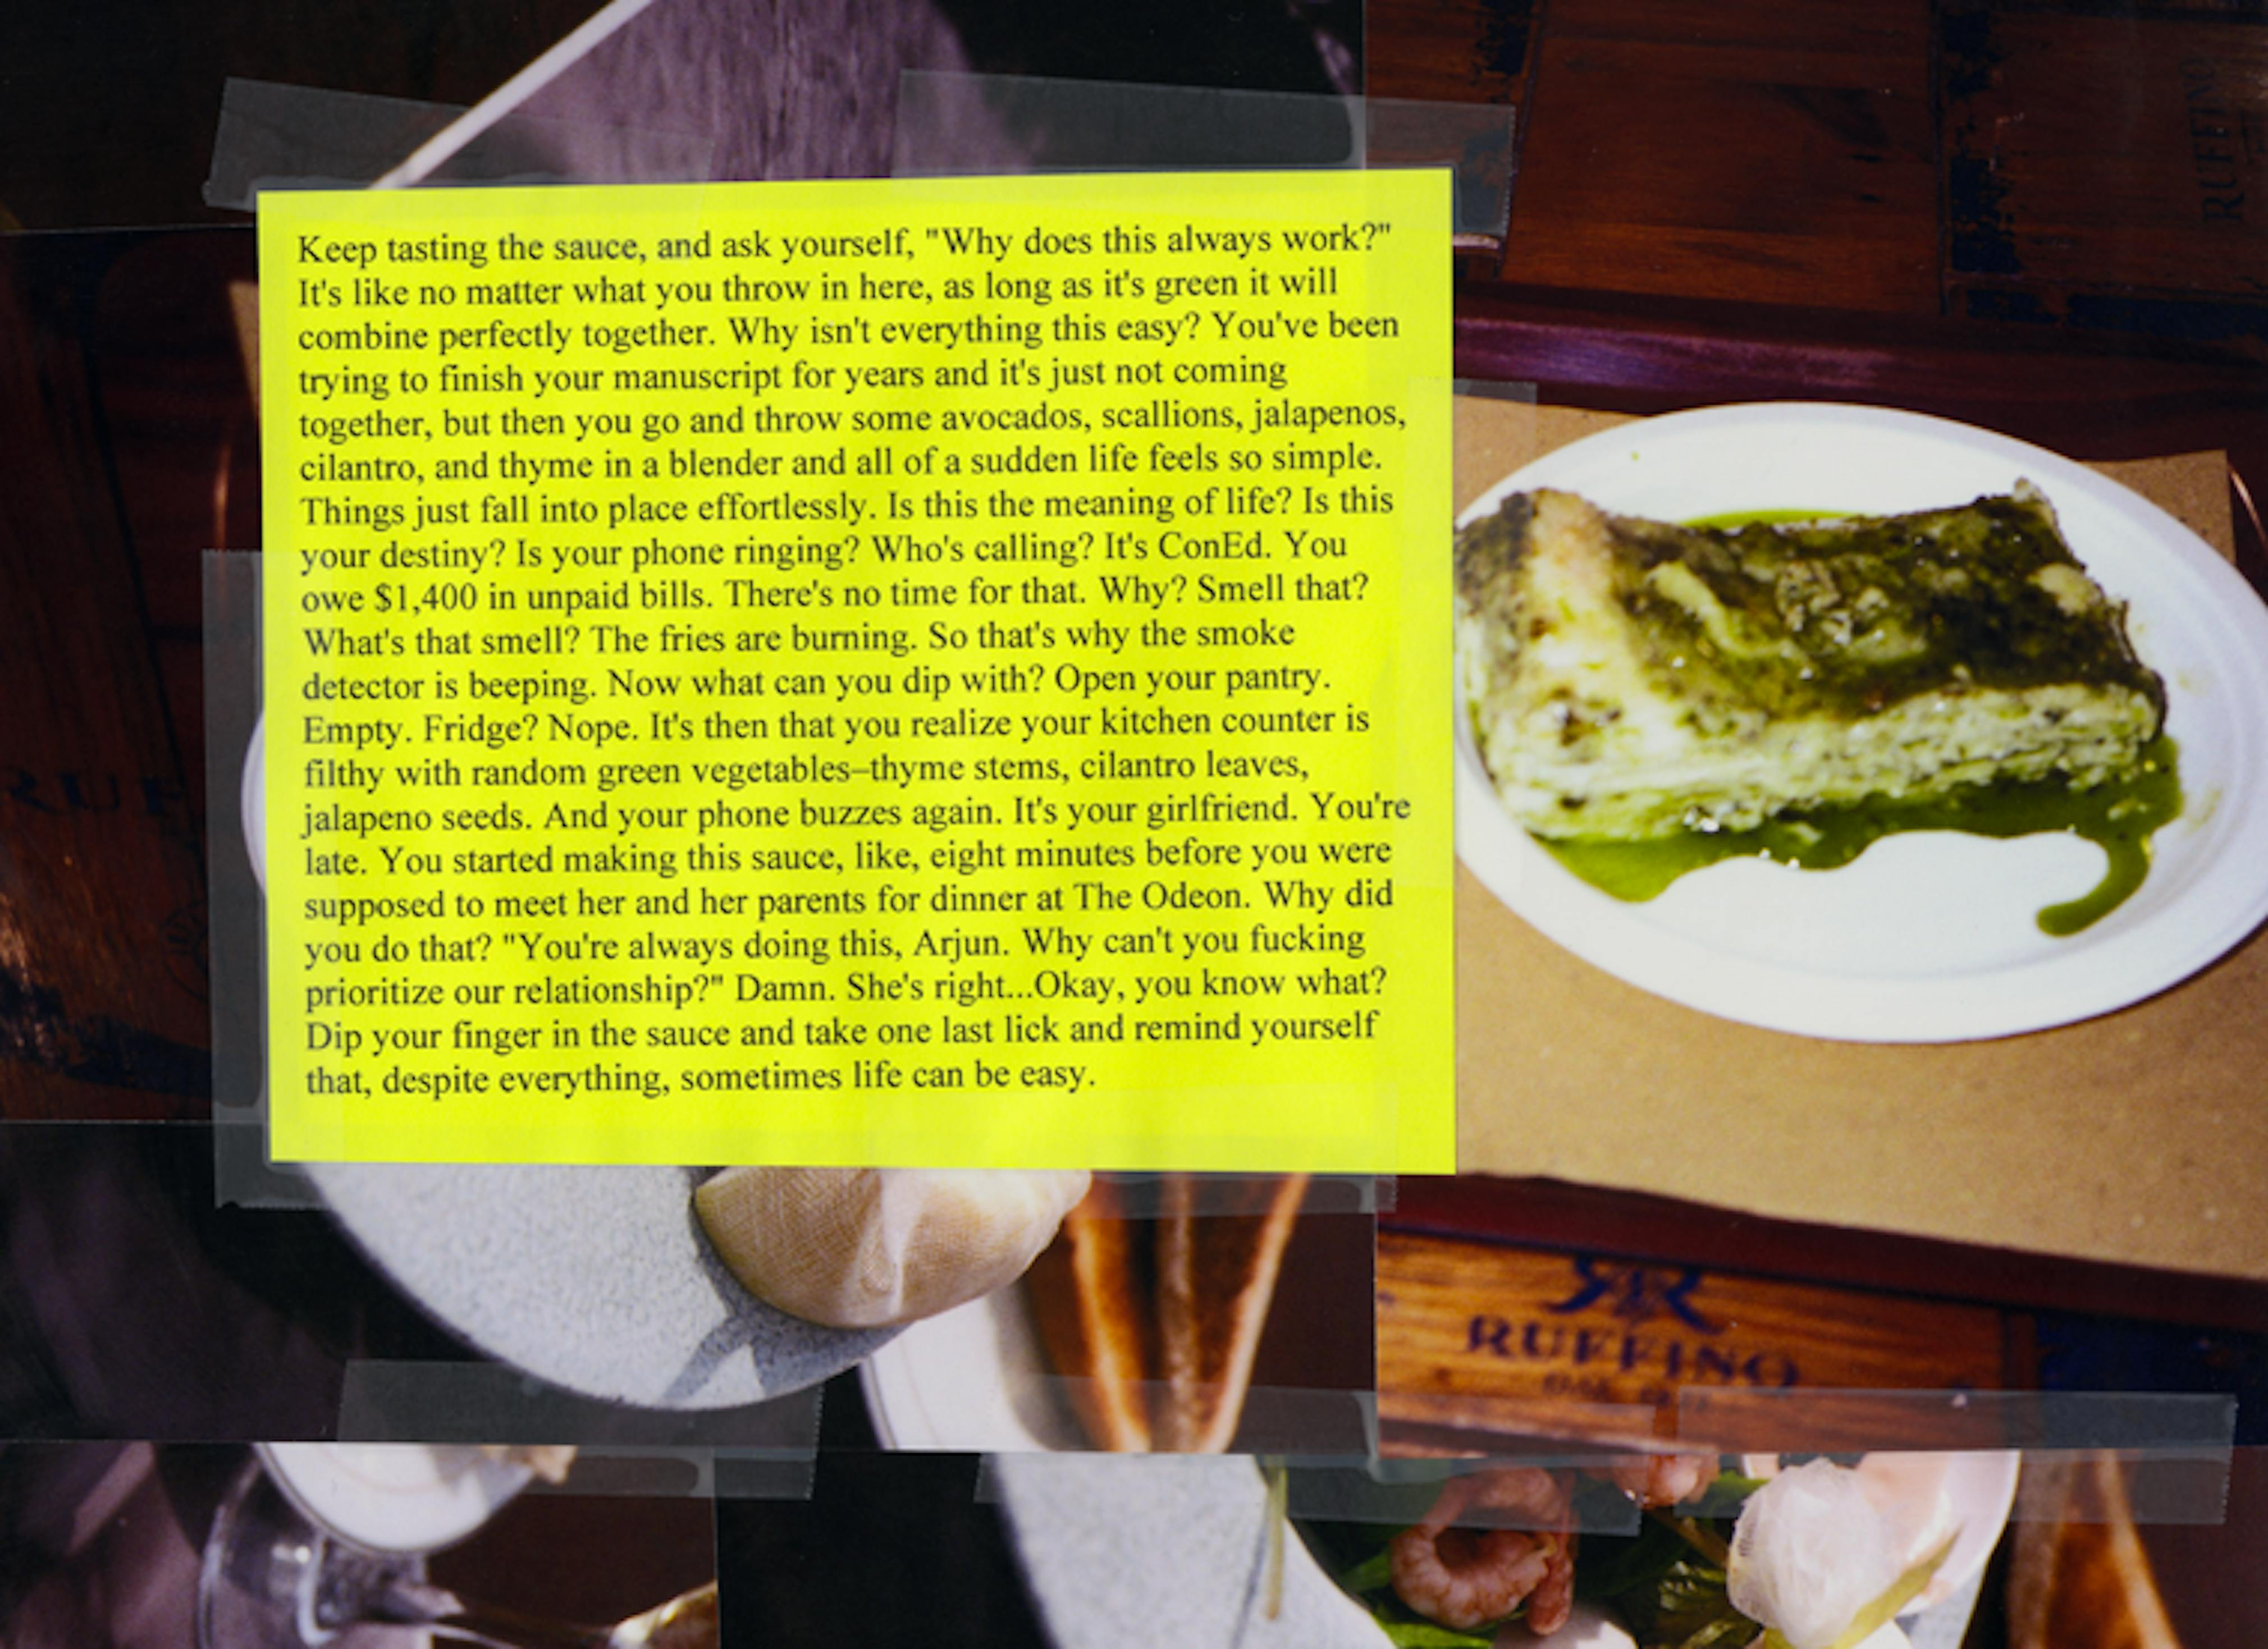 Keep tasting the sauce, and ask yourself, "Why does this always work?"
It's like no matter what you throw in here, as long as it's green it will
combine perfectly together. Why isn't everything this easy? You've been
trying to finish your manuscript for years and it's just not coming
together, but then you go and throw some avocados, scallions, jalapenos,
cilantro, and thyme in a blender and all of a sudden life feels so simple.
Things just fall into place effortlessly. Is this the meaning of life? Is this
your destiny? Is your phone ringing? Who's calling? It's ConEd. You
owe $1,400 in unpaid bills. There's no time for that. Why? Smell that?
What's that smell? The fries are burning. So that's why the smoke
detector is beeping. Now what can you dip with? Open your pantry.
Empty. Fridge? Nope. It's then that you realize your kitchen counter is
filthy with random green vegetables–thyme stems, cilantro leaves,
jalapeno seeds. And your phone buzzes again. It's your girlfriend. You're
late. You started making this sauce, like, eight minutes before you were
supposed to meet her and her parents for dinner at The Odeon. Why did
you do that? "You're always doing this, Arjun. Why can't you fucking
prioritize our relationship?" Damn. She's right...Okay, you know what?
Dip your finger in the sauce and take one last lick and remind yourself
that, despite everything, sometimes life can be easy.
RUFFINO
RUFFINO